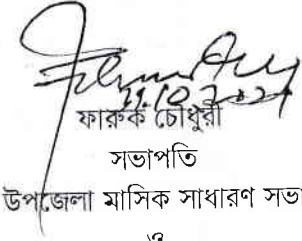 ফারুক চৌধুরী
সভাপতি
উপজেলা মাসিক সাধারণ সভা
ও